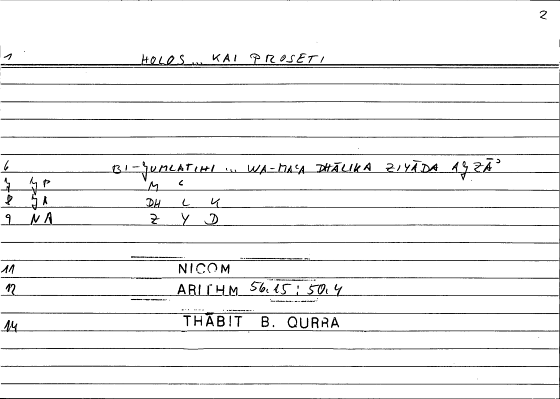 2
1 HOLOS... KAI PROSETI
6 BI-ǦUMLATIHI ... WA-MAʿA DHĀLIKA ZIYĀDA AǦZĀʾ
7 ǦP M ʿ
8 ǦA DH L K
9 NA Z Y D
11 NICOM
12 ARITHM 56.15 ; 50.4
14 THĀBIT B. QURRA